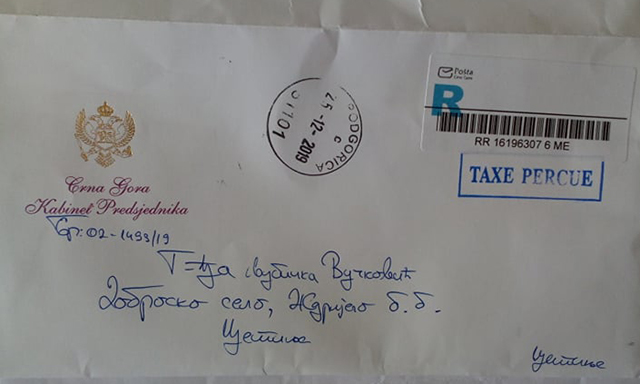 Pošta
R
RR 16196307 6 ME
TAXE PERCUE
PODGORICA
25-12-2019
81101
C
Crna Gora
Kabinet Predsjednika
Бр: 02-1493/19
Г-ђа Љубичка Вучковић
Добрско село, Ждријело б.б.
Цетиње
Цетиње